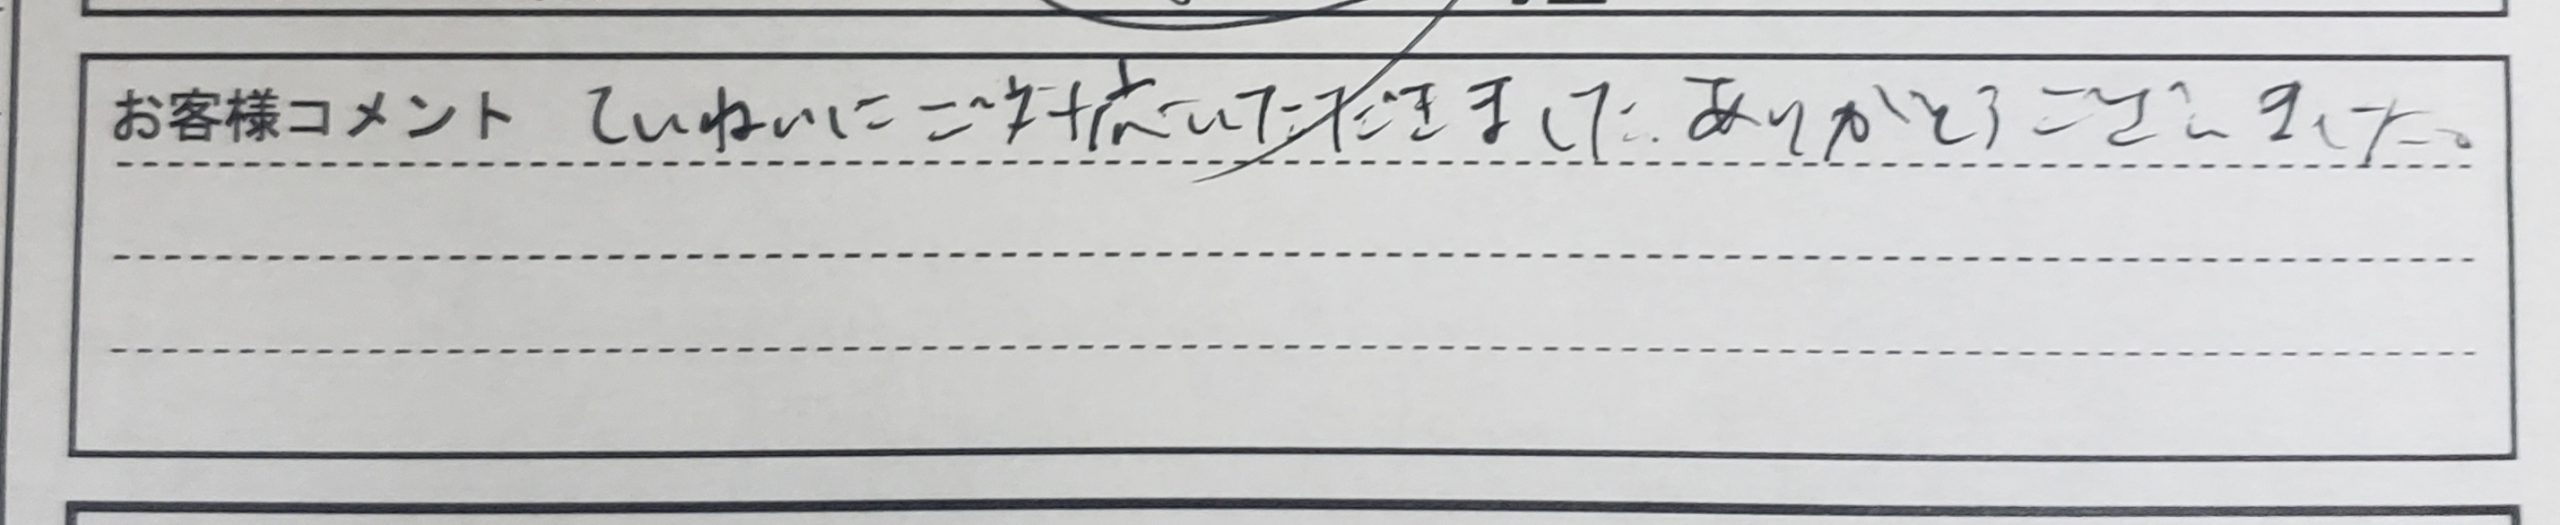 お客様コメント ていねいにご対応いただきました。ありがとうございました。